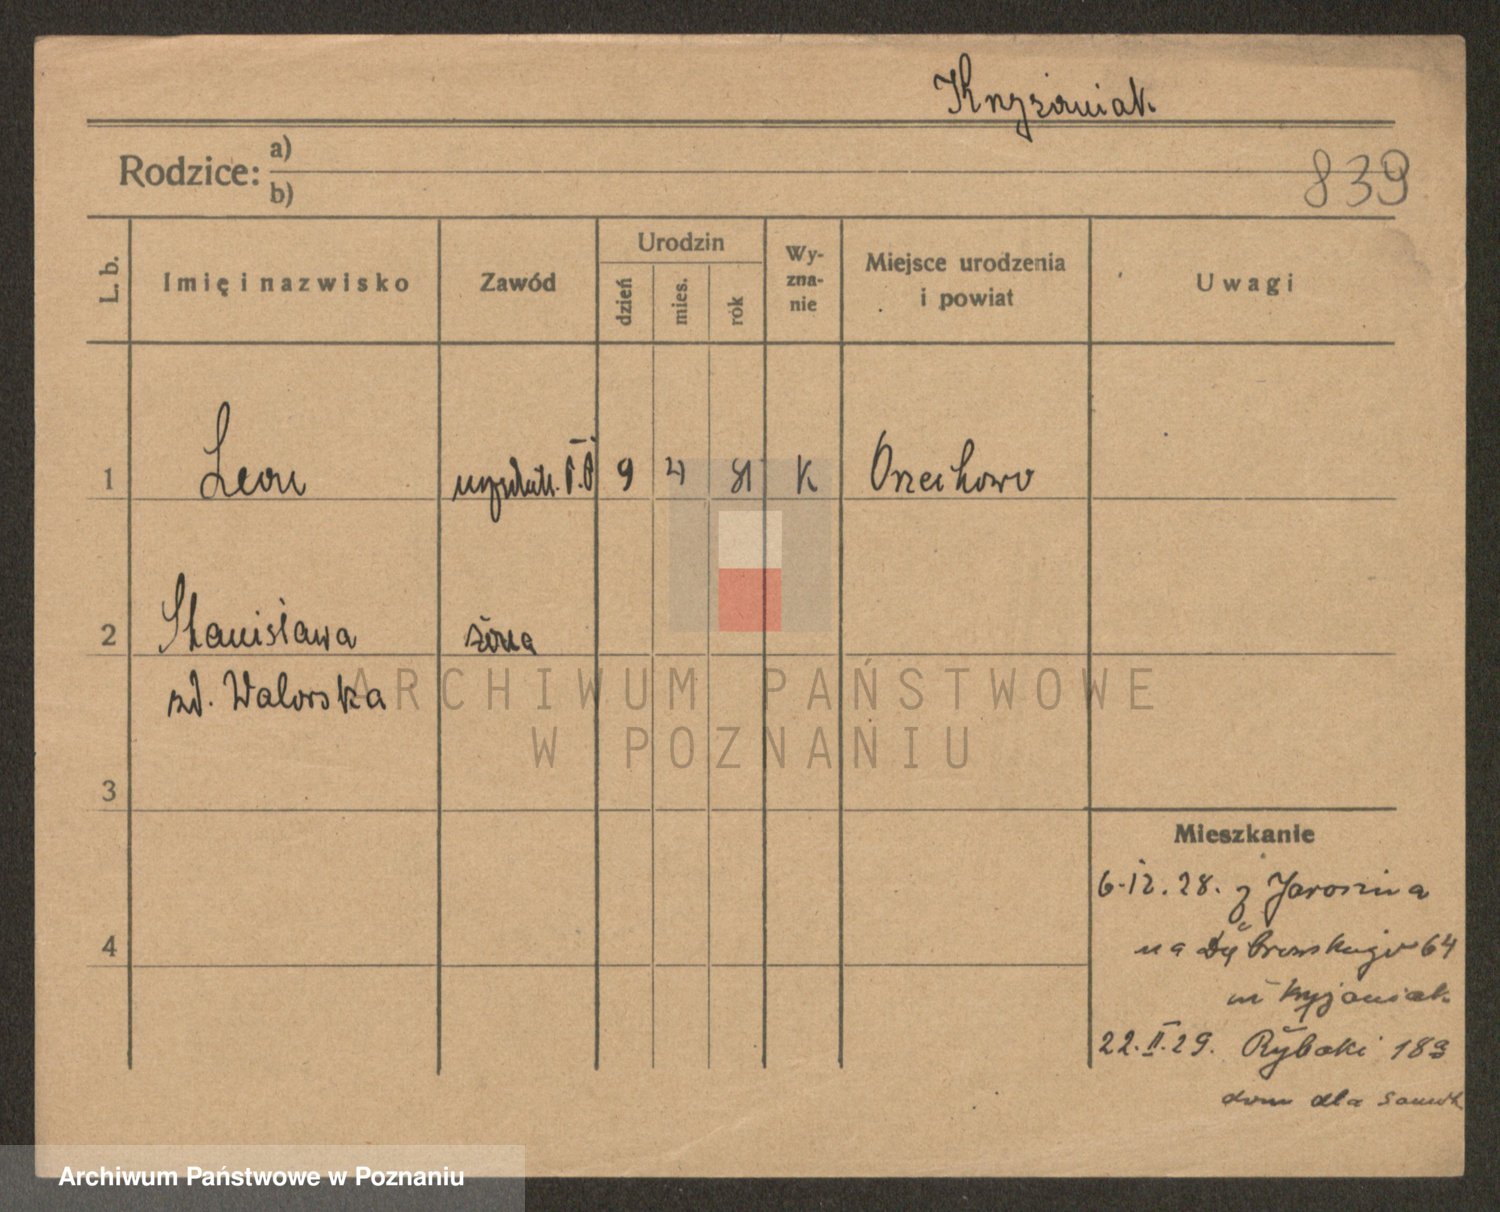 Krzyżaniak
Rodzice: a)
b)
839
L. b.
Imię i nazwisko
Zawód
Urodzin
dzień
mies.
rok
Wy-
zna-
nie
Miejsce urodzenia
i powiat
Uwagi
1 Leon 9 4 91 K Orzechowo
2 Stanisława żona
zd. Walorska
3
4
Mieszkanie
6.12.28. z Jarocina
na Dąbrowskiego 64
22.II.29. Rybaki 18
dom dla
ARCHIWUM PAŃSTWOWE
W POZNANIU
Archiwum Państwowe w Poznaniu